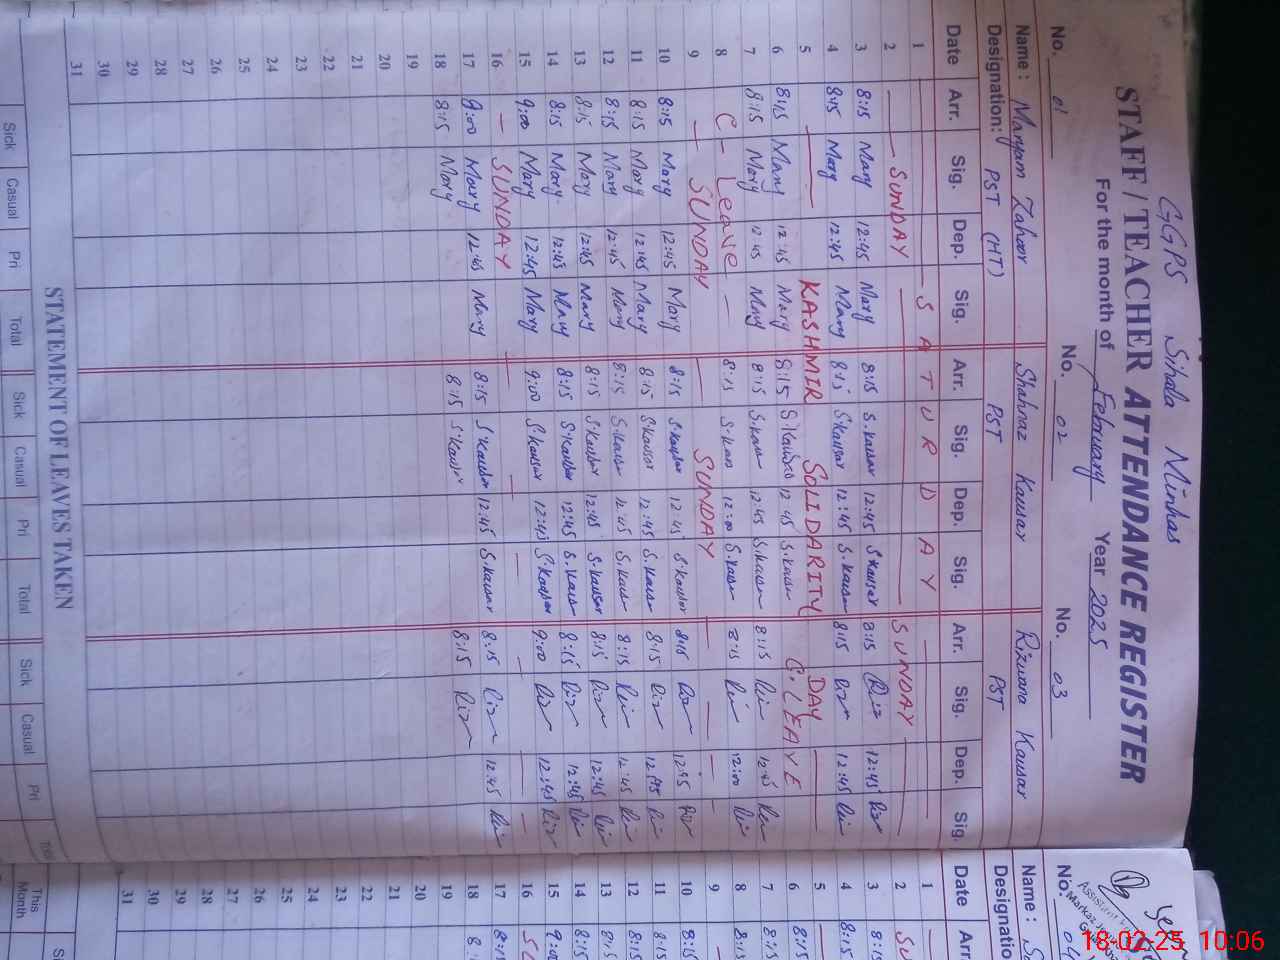 GGPS Sihala Minhas
STAFF / TEACHER ATTENDANCE REGISTER
For the month of February Year 2025
No. 01 No. 02 No. 03
Name : Maryam Zahoor Shahnaz Kausar Rizwana Kausar
Designation: PST (HT) PST PST
Date Arr. Sig. Dep. Sig. Arr. Sig. Dep. Sig. Arr. Sig. Dep. Sig.
1 SATURDAY
2 SUNDAY SUNDAY
3 8:15 Mary 12:45 Mary 8:15 S.kausar 12:45 S.kausar 8:15 Riz 12:45 Riz
4 8:15 Mary 12:45 Mary 8:15 S.kausar 12:45 S.kausar 8:15 Riz 12:45 Riz
5 KASHMIR SOLIDARITY DAY
6 8:15 Mary 12:45 Mary 8:15 S.kausar 12:45 S.kausar C.LEAVE
7 8:15 Mary 12:45 Mary 8:15 S.kausar 12:45 S.kausar 8:15 Riz 12:45 Riz
8 C- Leave 8:15 S.kausar 12:00 S.kausar 8:15 Riz 12:00 Riz
9 SUNDAY SUNDAY
10 8:15 Mary 12:45 Mary 8:15 S.kausar 12:45 S.kausar 8:15 Riz 12:45 Riz
11 8:15 Mary 12:45 Mary 8:15 S.kausar 12:45 S.kausar 8:15 Riz 12:45 Riz
12 8:15 Mary 12:45 Mary 8:15 S.kausar 12:45 S.kausar 8:15 Riz 12:45 Riz
13 8:15 Mary 12:45 Mary 8:15 S.kausar 12:45 S.kausar 8:15 Riz 12:45 Riz
14 8:15 Mary 12:45 Mary 8:15 S.kausar 12:45 S.kausar 8:15 Riz 12:45 Riz
15 9:00 Mary 12:45 Mary 9:00 S.kausar 12:45 S.kausar 9:00 Riz 12:45 Riz
16 SUNDAY
17 9:00 Mary 12:45 Mary 8:15 S.kausar 12:45 S.kausar 8:15 Riz 12:45 Riz
18 8:15 Mary 8:15 S.kausar 8:15 Riz
19
20
21
22
23
24
25
26
27
28
29
30
31
STATEMENT OF LEAVES TAKEN
Sick Casual Pri Total Sick Casual Pri Total Sick Casual Pri Total
No. 04
Name :
Designatio
Date Arr
1
2 SU
3 8:15
4 8:15
5
6 8:15
7 8:15
8 8:15
9
10 8:15
11 8:15
12 8:15
13 8:15
14 8:15
15 9:00
16 SU
17 8:15
18 8:
19
20
21
22
23
24
25
26
27
28
29
30
31
This Month
Si
18-02-25 10:06